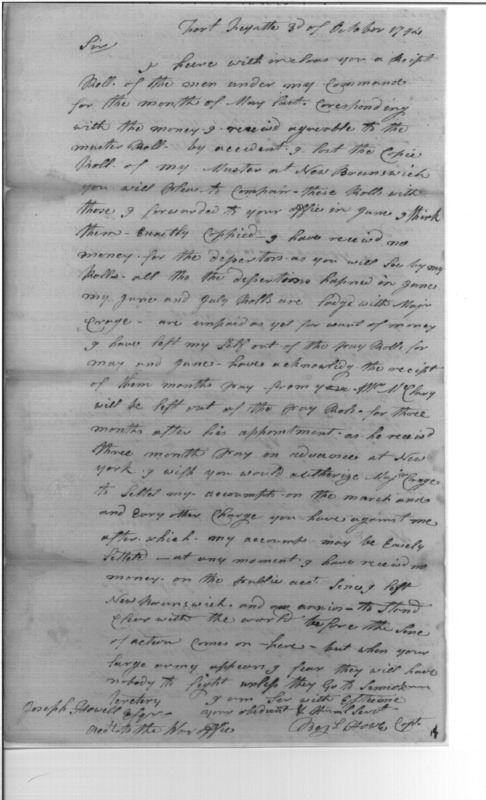 Fort Feyatte 3d of October 1794
Sir
I heere with inclose you a Recipt
Roll. of the men under my Command
for the months of May last. Coresponding
with the money I receivd agreable to the
muster Roll. by accident. I lost the Copie
Roll. of my Muster at New Brunswich
you will Pleas. to Compair these Rolls with
those I forwarded to your office in June I think
them Exactly Cophied. I have receivd no
money. for the desertors. as you will See by my
Rolls. all tho the desertions hapned in June
my June and July Rolls are lodge with Majr
Crage - are unpaid as yet for want of money
I have left my Self out of the pay Rolls for
may and June - have acknowledg the receipt
of them months pay - from Mr McClary
will be left out of the pay Rols. for three
months after his appointment. as he receivd
three month pay in advance at New
york. I wish you would autherize Majr Crage
to Settel my accompts. on the march and
and Evry other Charge you have against me
after which. my accounts may be Easely
Setteld - at any moment. I have receivd no
money. on the publick act. Since I left
New Brunswich. and am anxis - to Stand
Clear with the world before the Sine
of action Comes on - here - but when your
large army appears I fear they will have
nobody to fight unless they Go to
Joseph Howell Esqr.
I am Sir with Esteeme
your obedient & Humbl Servt
Acct to the War office
Capt.